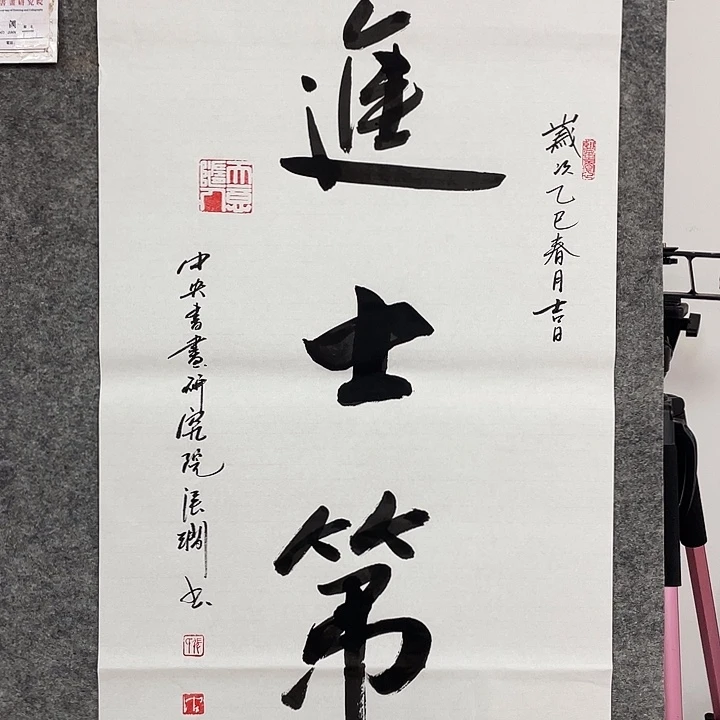 歲次乙巳春月吉日
進士第
中央書畫研究院張瓓书